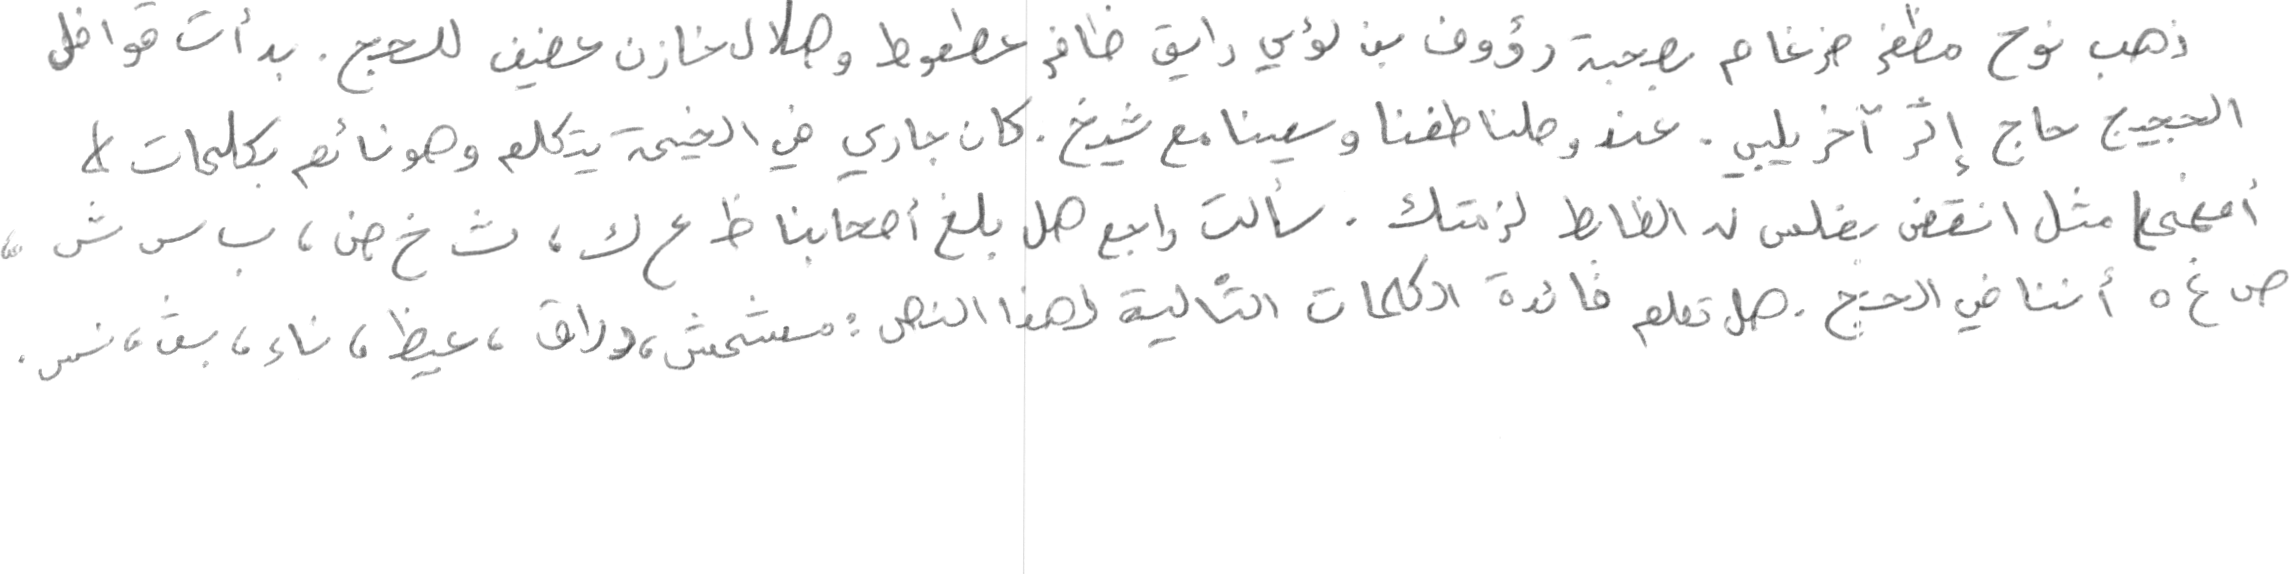 ذهب نوح مظفر ضرغام بصحبة رؤوف بن لؤي رايق ظافر عطعوط وهلال خازن عفيف للحج. بدأت قوافل
الحجيج حاج إثر آخر يلبي. عند وصلنا طفنا وسعينا مع شيخ. كان جاري في الخيمة يتكلم وهو نائم بكلمات لا
أفهمها مثل انقض يغلس الظابط لزمتك. سألت راجع هل بلغ أصحابنا ظ ع ك، ث خ ض، ب س ش،
ص غ ه أننا في الحج. هل تعلم فائدة الكلمات التالية لهذا النص: مشمش، وراق، عيظ، ناء، بق، نس.